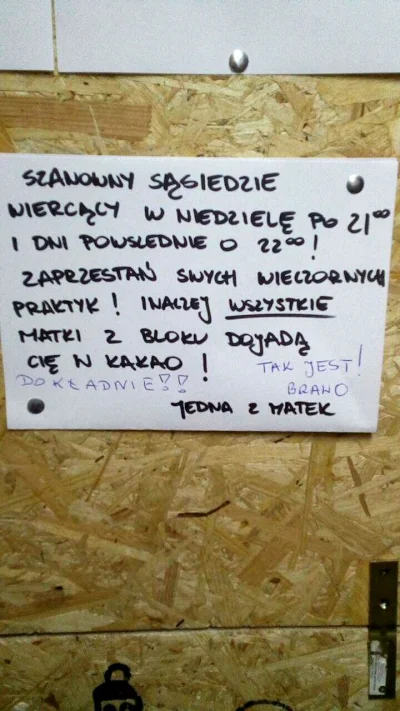 SZANOWNY SĄSIEDZIE
WIERCĄCY W NIEDZIELĘ PO 21⁰⁰
I DNI POWSZEDNIE O 22⁰⁰!
ZAPRZESTAŃ SWYCH WIECZORNYCH
PRAKTYK! INACZEJ WSZYSTKIE
MATKI Z BLOKU DOJADĄ
CIĘ N KAKAO!
TAK JEST!
DOKŁADNIE!!
BRAWO
JEDNA Z MATEK